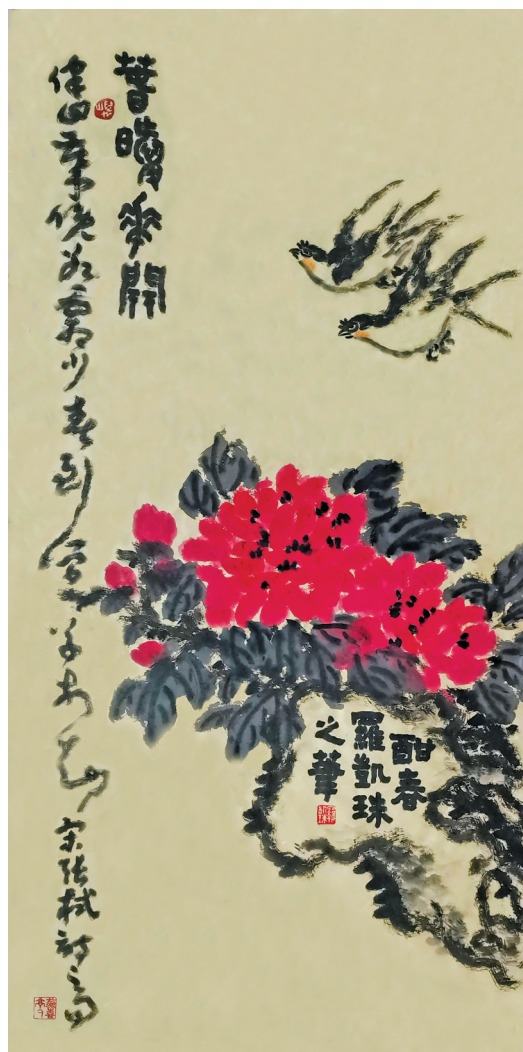 春晴花開
律回歲晚冰霜少春到人間草木知 宋張栻詩之句
酣春
羅凱珠
之筆